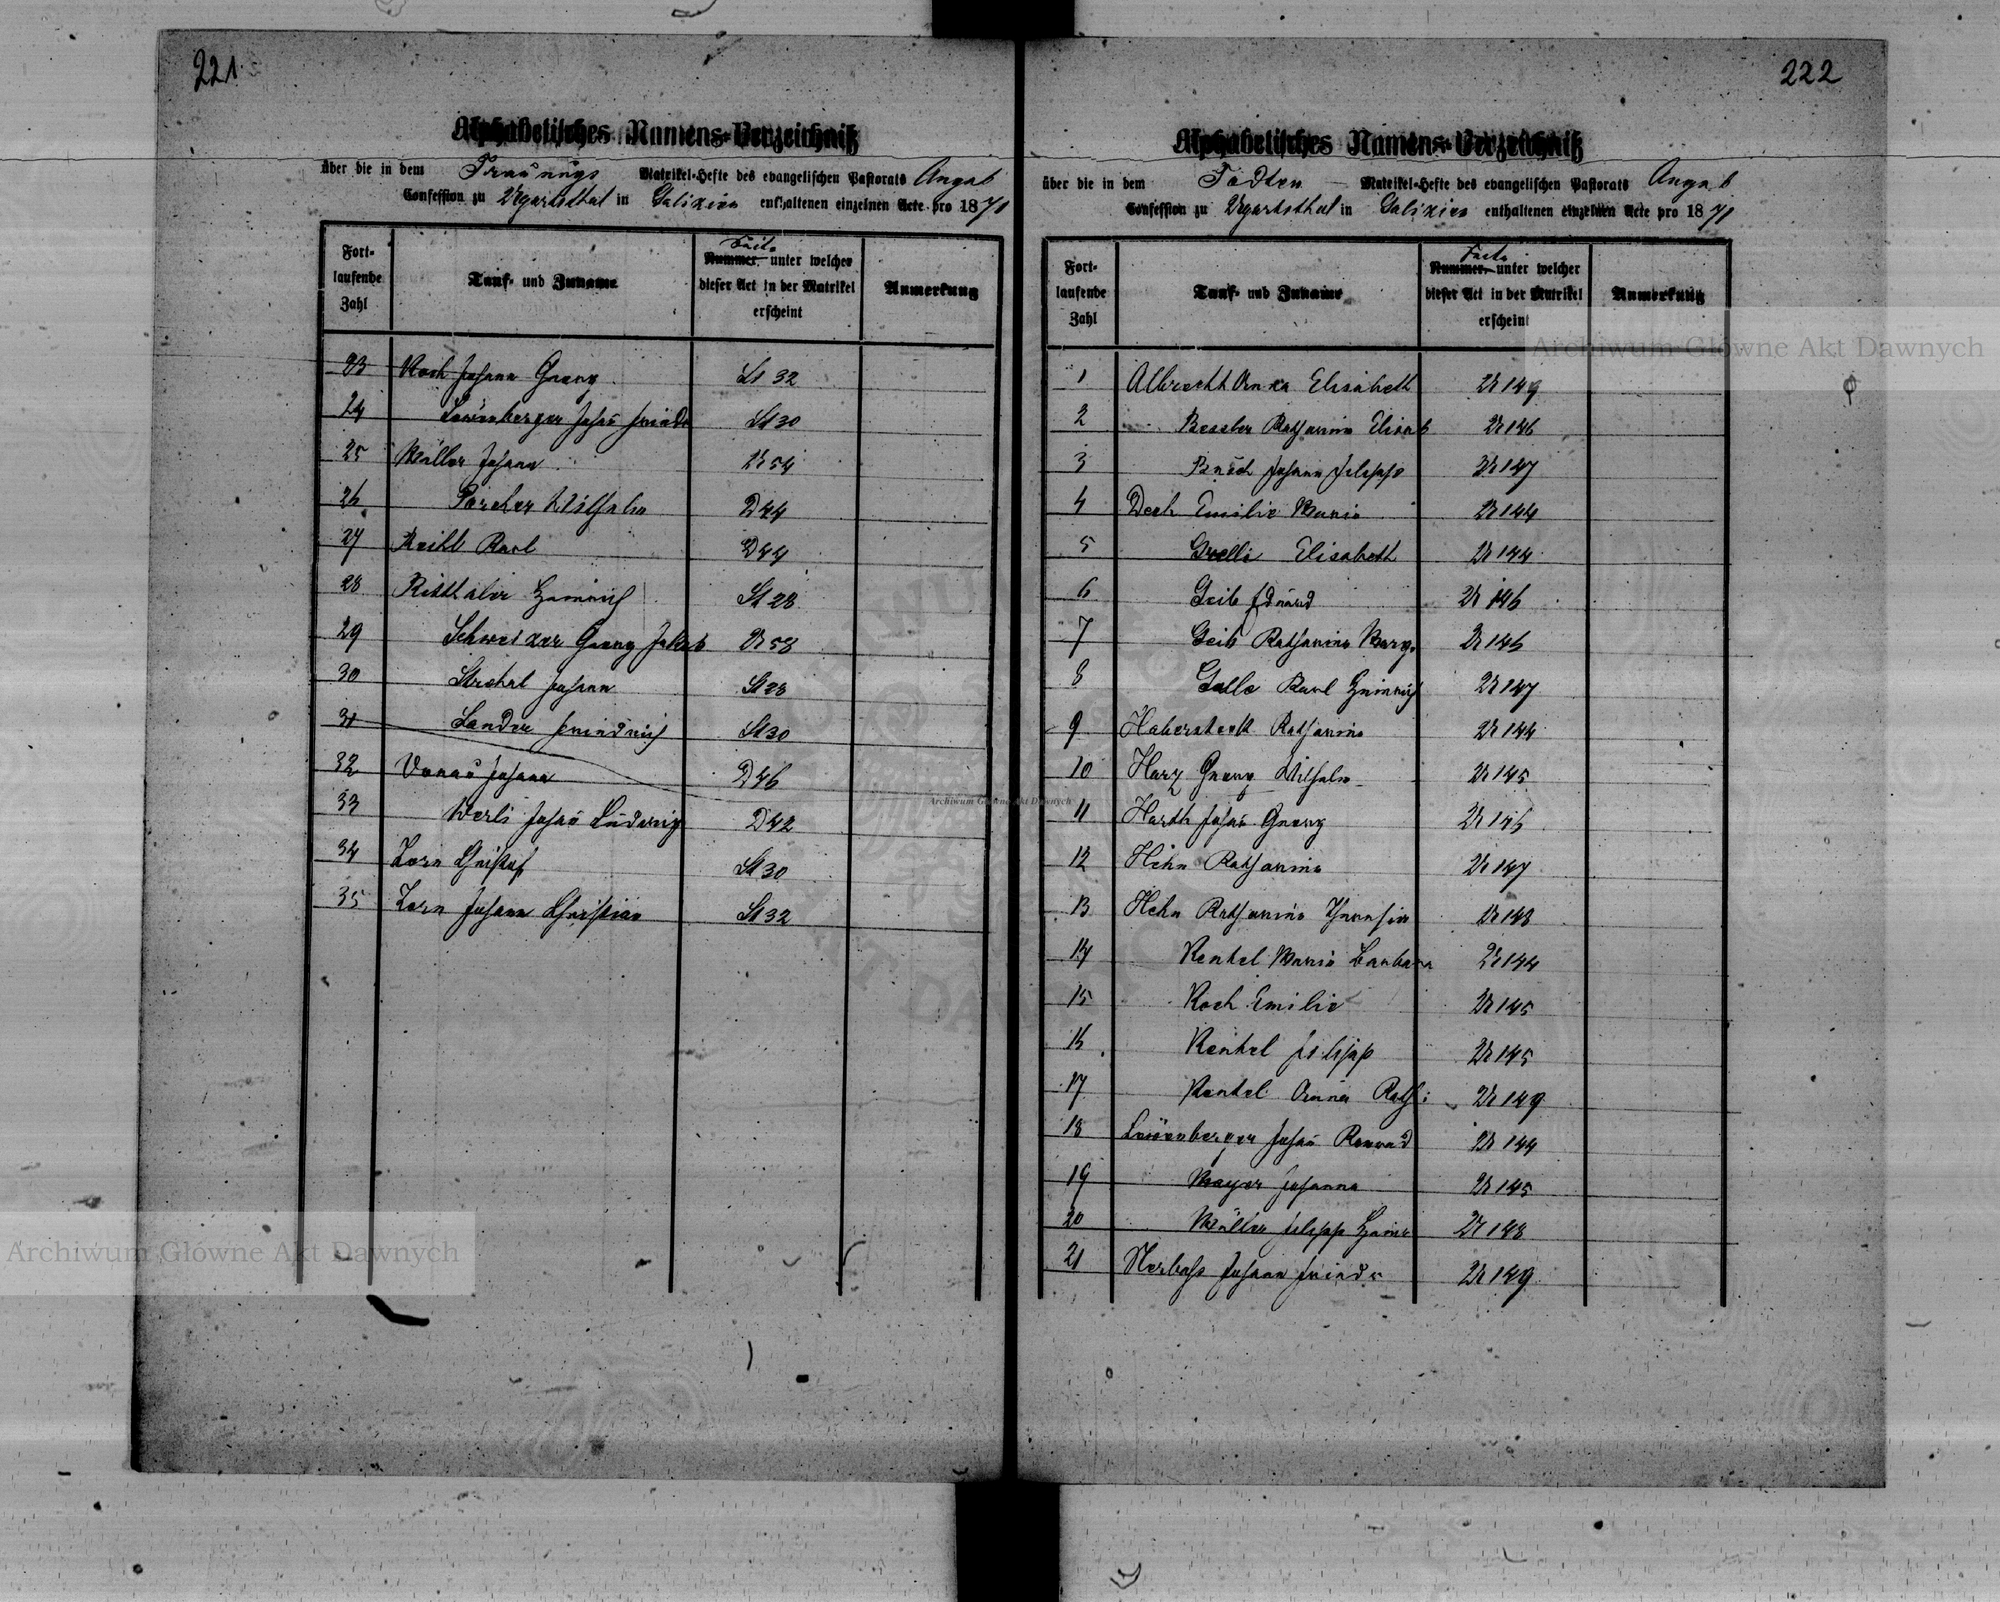 221
Alphabetisches Namens-Verzeichniß
über die in dem Trauungs Matrikel-Hefte des evangelischen Pastorats Augsb
Confession zu Ugartsthal in Galizien enthaltenen einzelnen Acte pro 1871
Fort-laufende Zahl Tauf- und Zuname Seite Nummer unter welcher dieser Act in der Matrikel erscheint Anmerkung
23 Koch Johann Georg St 32
24 Leuenberger Johañ Friedr St 30
25 Müller Johann 54
26 Porcher Wilhelm D 44
27 Reihl Karl D 44
28 Ritthaler Heinrich St 28
29 Schweizer Georg Jakob 58
30 Strehel Johann St 28
31 Sander Friedrich St 30
32 Johann D 46
33 Werli Johañ Ludwig D 42
34 Zorn St 30
35 Zorn Johann Christian St 32
222
Alphabetisches Namens-Verzeichniß
über die in dem Todten Matrikel-Hefte des evangelischen Pastorats Augsb
Confession zu Ugartsthal in Galizien enthaltenen einzelnen Acte pro 1871
Fort-laufende Zahl Tauf- und Zuname Seite Nummer unter welcher dieser Act in der Matrikel erscheint Anmerkung
1 Albrecht Anna Elisabeth U 149
2 Bessler Katharina Elisab U 146
3 Busch Johann Philipp U 147
4 Dech Emilie Maria U 144
5 Elisabeth U 144
6 Geib Eduard U 146
7 Geib Katharina Marg. U 146
8 Karl Heinrich U 147
9 Haberstock Katharina U 144
10 Harz Georg Wilhelm U 145
11 Harth Johañ Georg U 146
12 Hehn Katharina U 147
13 Hehn Katharina Theresia U 148
14 Kenkel Maria Barbara U 144
15 Koch Emilie U 145
16 Kenkel Philipp U 145
17 Kenkel Anna Kath: U 149
18 Leuenberger Johañ Konrad U 144
19 Mayer Johanna U 145
20 Müller Philipp Heinr U 148
21 Nerbass Johann Friedr U 149
Archiwum Główne Akt Dawnych
Archiwum Główne Akt Dawnych
Archiwum Główne Akt Dawnych